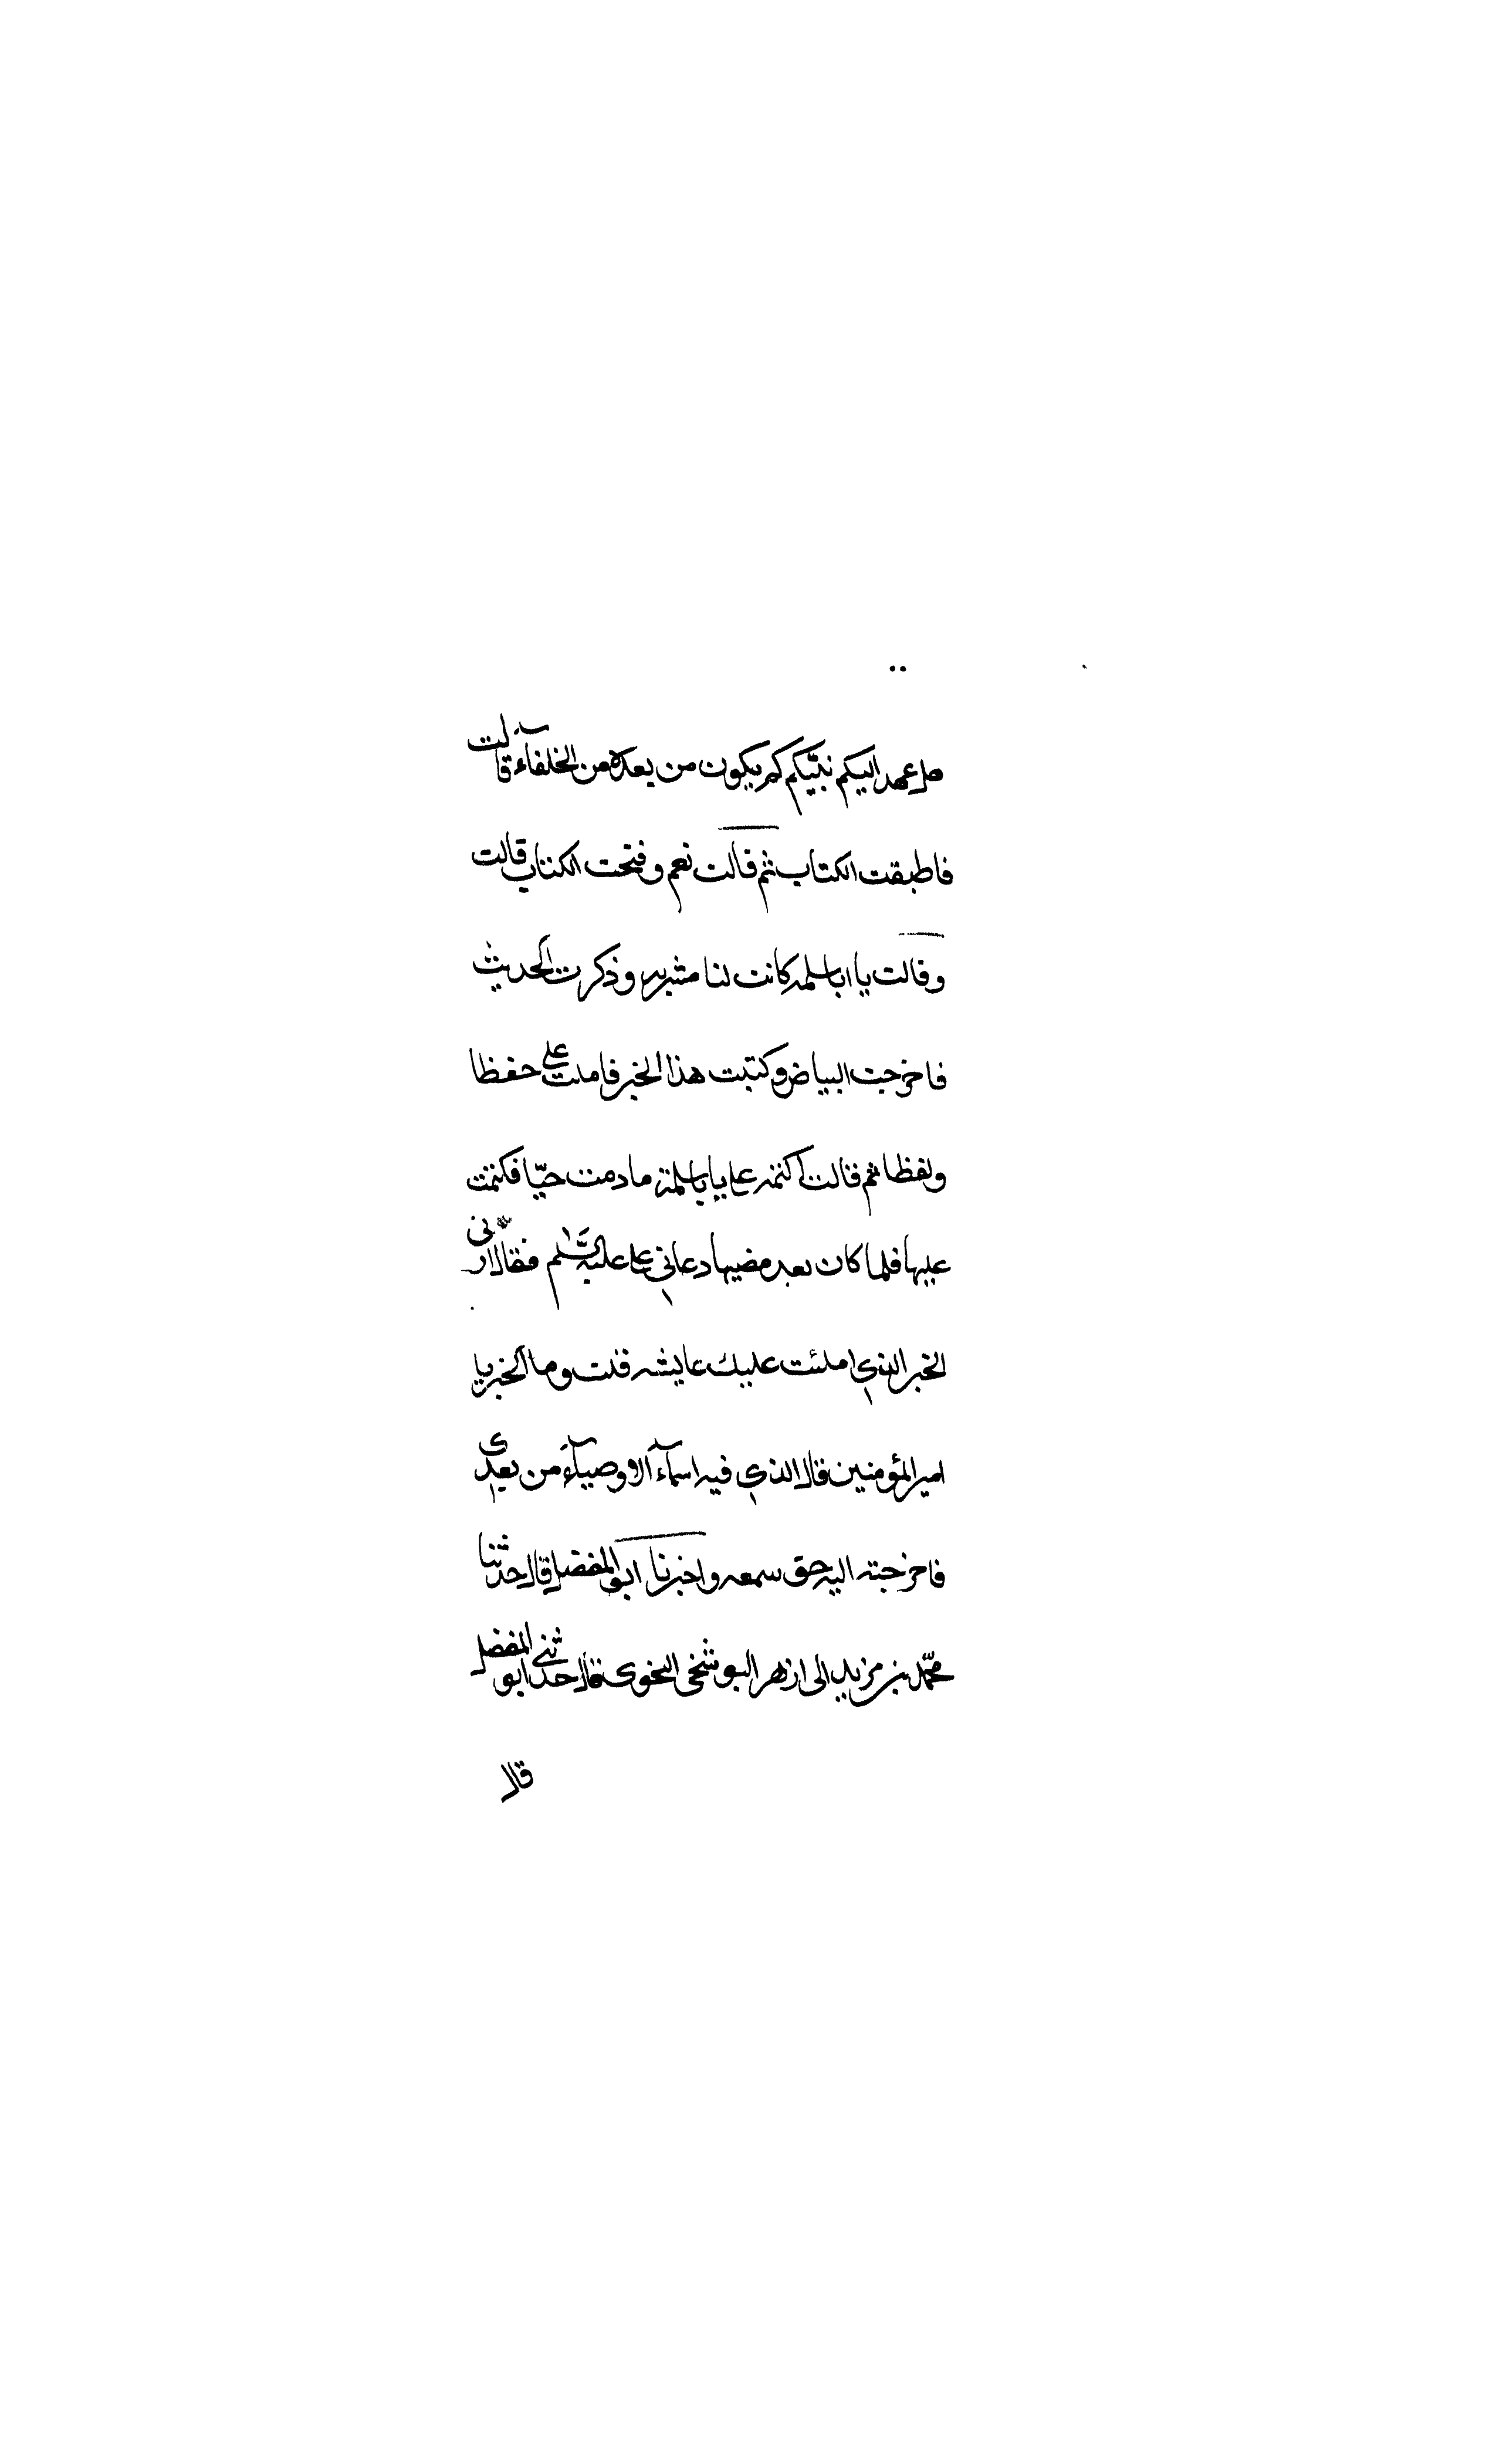 هل عهد اليكم نبيّكم كم يكون من بعده من الخلفآء قالت
فاطبقت الكتاب ثم قالت نعم وفتحت الكتاب قالت
وقالت يا ابا سلمه كانت لنا مشربه وذكرت الحديث
فاخرجت البياض وكتبت هذا الخبر فاملت علي حفظا
ولفظا ثم قالت اكتمه علي يا با سلمة ما دمت حيّا فكتمت
عليها فلما كان بعد مضيها دعاني علي عليه السّلم فقال ارنى
الخبر الذي املئت عليك عايشه قلت وما الخبر يا
امير المؤمنين قال الذي فيه اسمآء الاوصيآء من بعدي
فاخرجته اليه حتى سمعه واخبرنا ابو المفضل قال حدثنا
محمّد بن مزيد ابى ازهر البوشنخى النحوى قال حدثنى ابو المفضل
قال